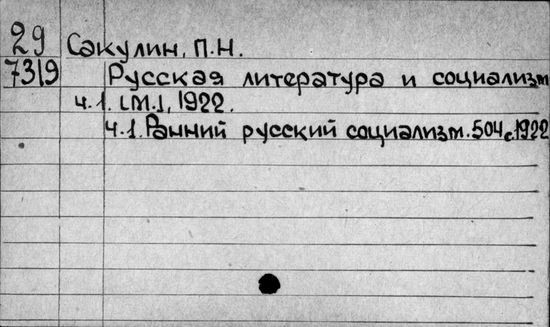 29 Сакулин, П.Н.
7319 Русская литература и социализм
ч.1. [М.], 1922.
ч.1. Ранний русский социализм. 504 с. 1922